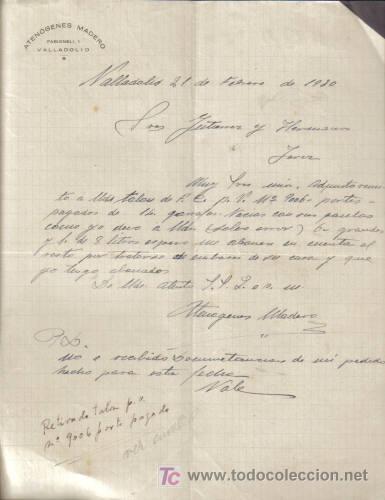 ATENÓGENES MADERO
PABIONELI, 1
VALLADOLID
Valladolid 21 de Febrero de 1930
Sres Gutierrez y Hermanos
Jerez
Muy Sres mios. Adjunto remi
to á Vdes talon de F.C. p.V. Nº 9006 portes
pagados de 14 garrafas vacias con sus
como yo devo a Vdes (salvo error) 6 grandes
y 6 de 8 litros espero me abonen en cuenta el
resto por tratarse de embases de su casa y que
yo tengo abonados
De Vdes atento S.S. q e s m
Atenogenes Madero
P.D.
no e recibido de mi pedido
hecho para esta fecha
Vale
Retirado talon p.v.
nº 9006 porte pagado
TC
todocoleccion
© www.todocoleccion.net